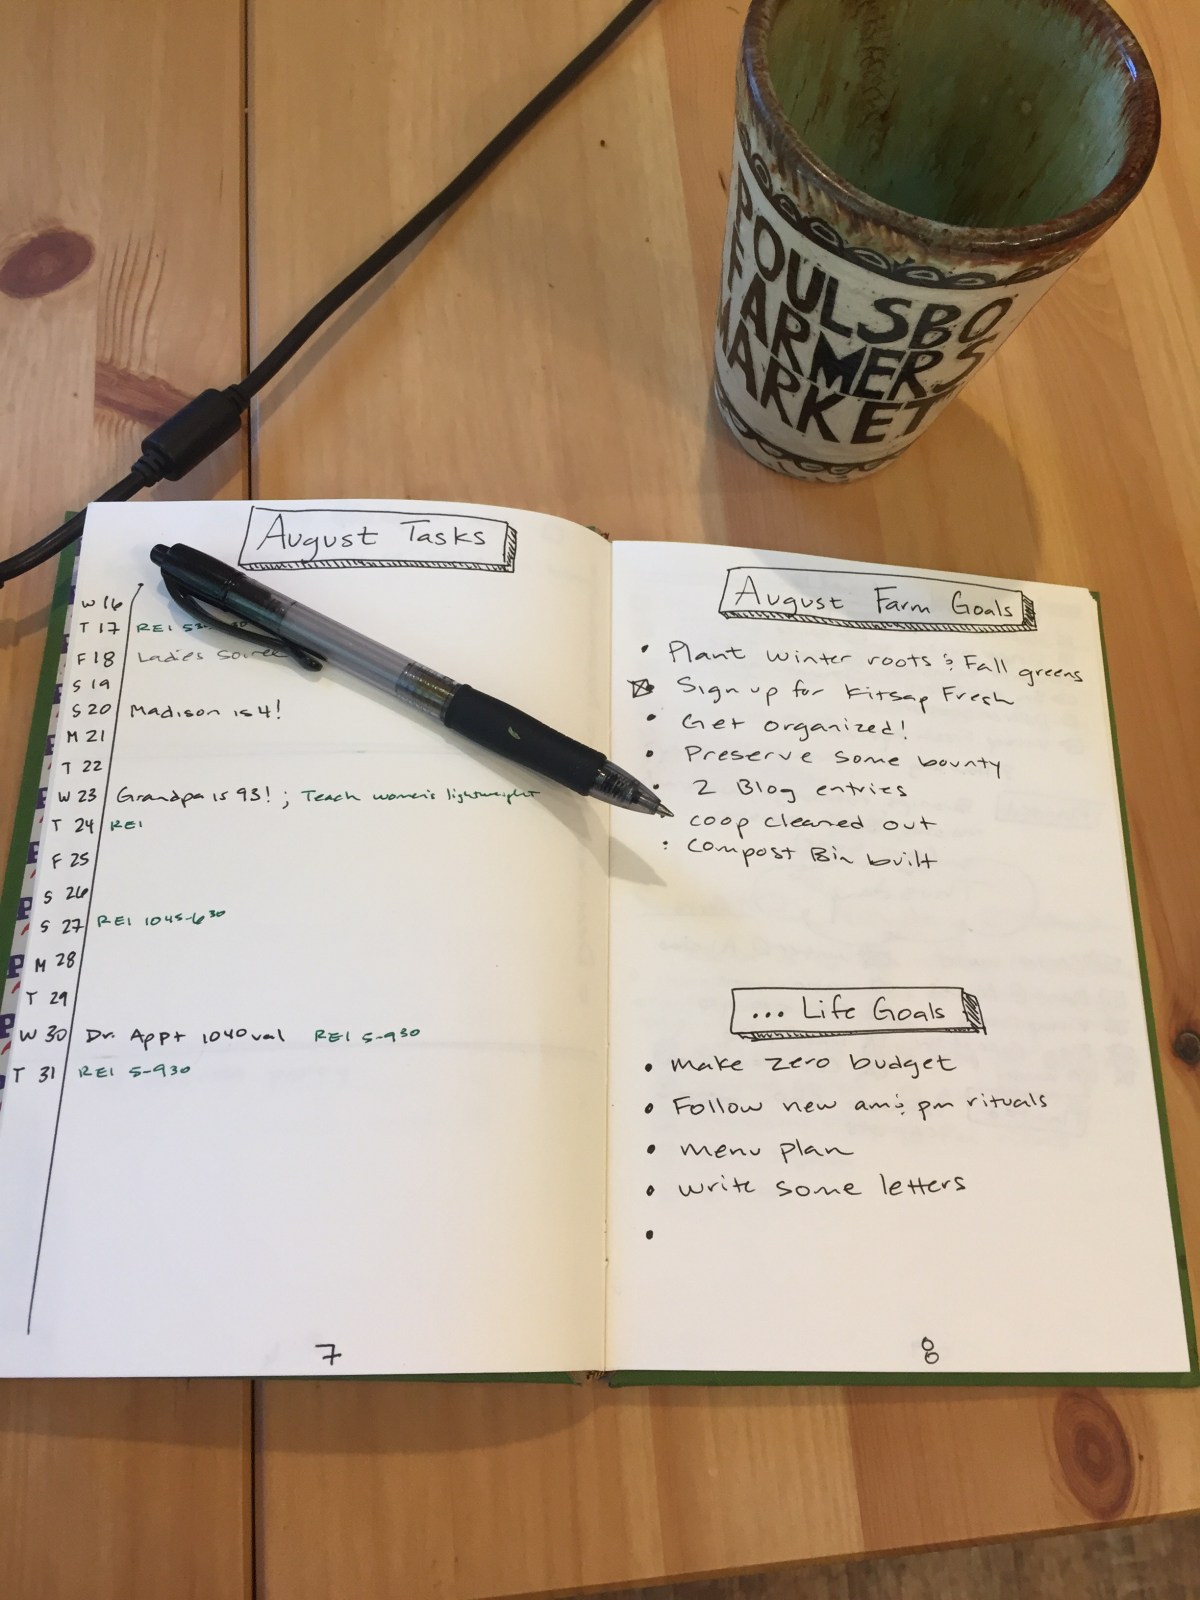 POULSBO
FARMERS
MARKET
August Tasks
W 16
T 17 REI
F 18 Ladies Soiree
S 19
S 20 Madison is 4!
M 21
T 22
W 23 Grandpa is 93! ; Teach women's lightweight
T 24 REI
F 25
S 26
S 27 REI 1045-630
M 28
T 29
W 30 Dr. Appt 1040 val REI 5-930
T 31 REI 5-930
7
August Farm Goals
• Plant winter roots & Fall greens
☒ Sign up for Kitsap Fresh
• Get organized!
• Preserve some bounty
• 2 Blog entries
• coop cleaned out
• compost Bin built
... Life Goals
• Make zero budget
• Follow new am & pm rituals
• menu plan
• write some letters
•
8